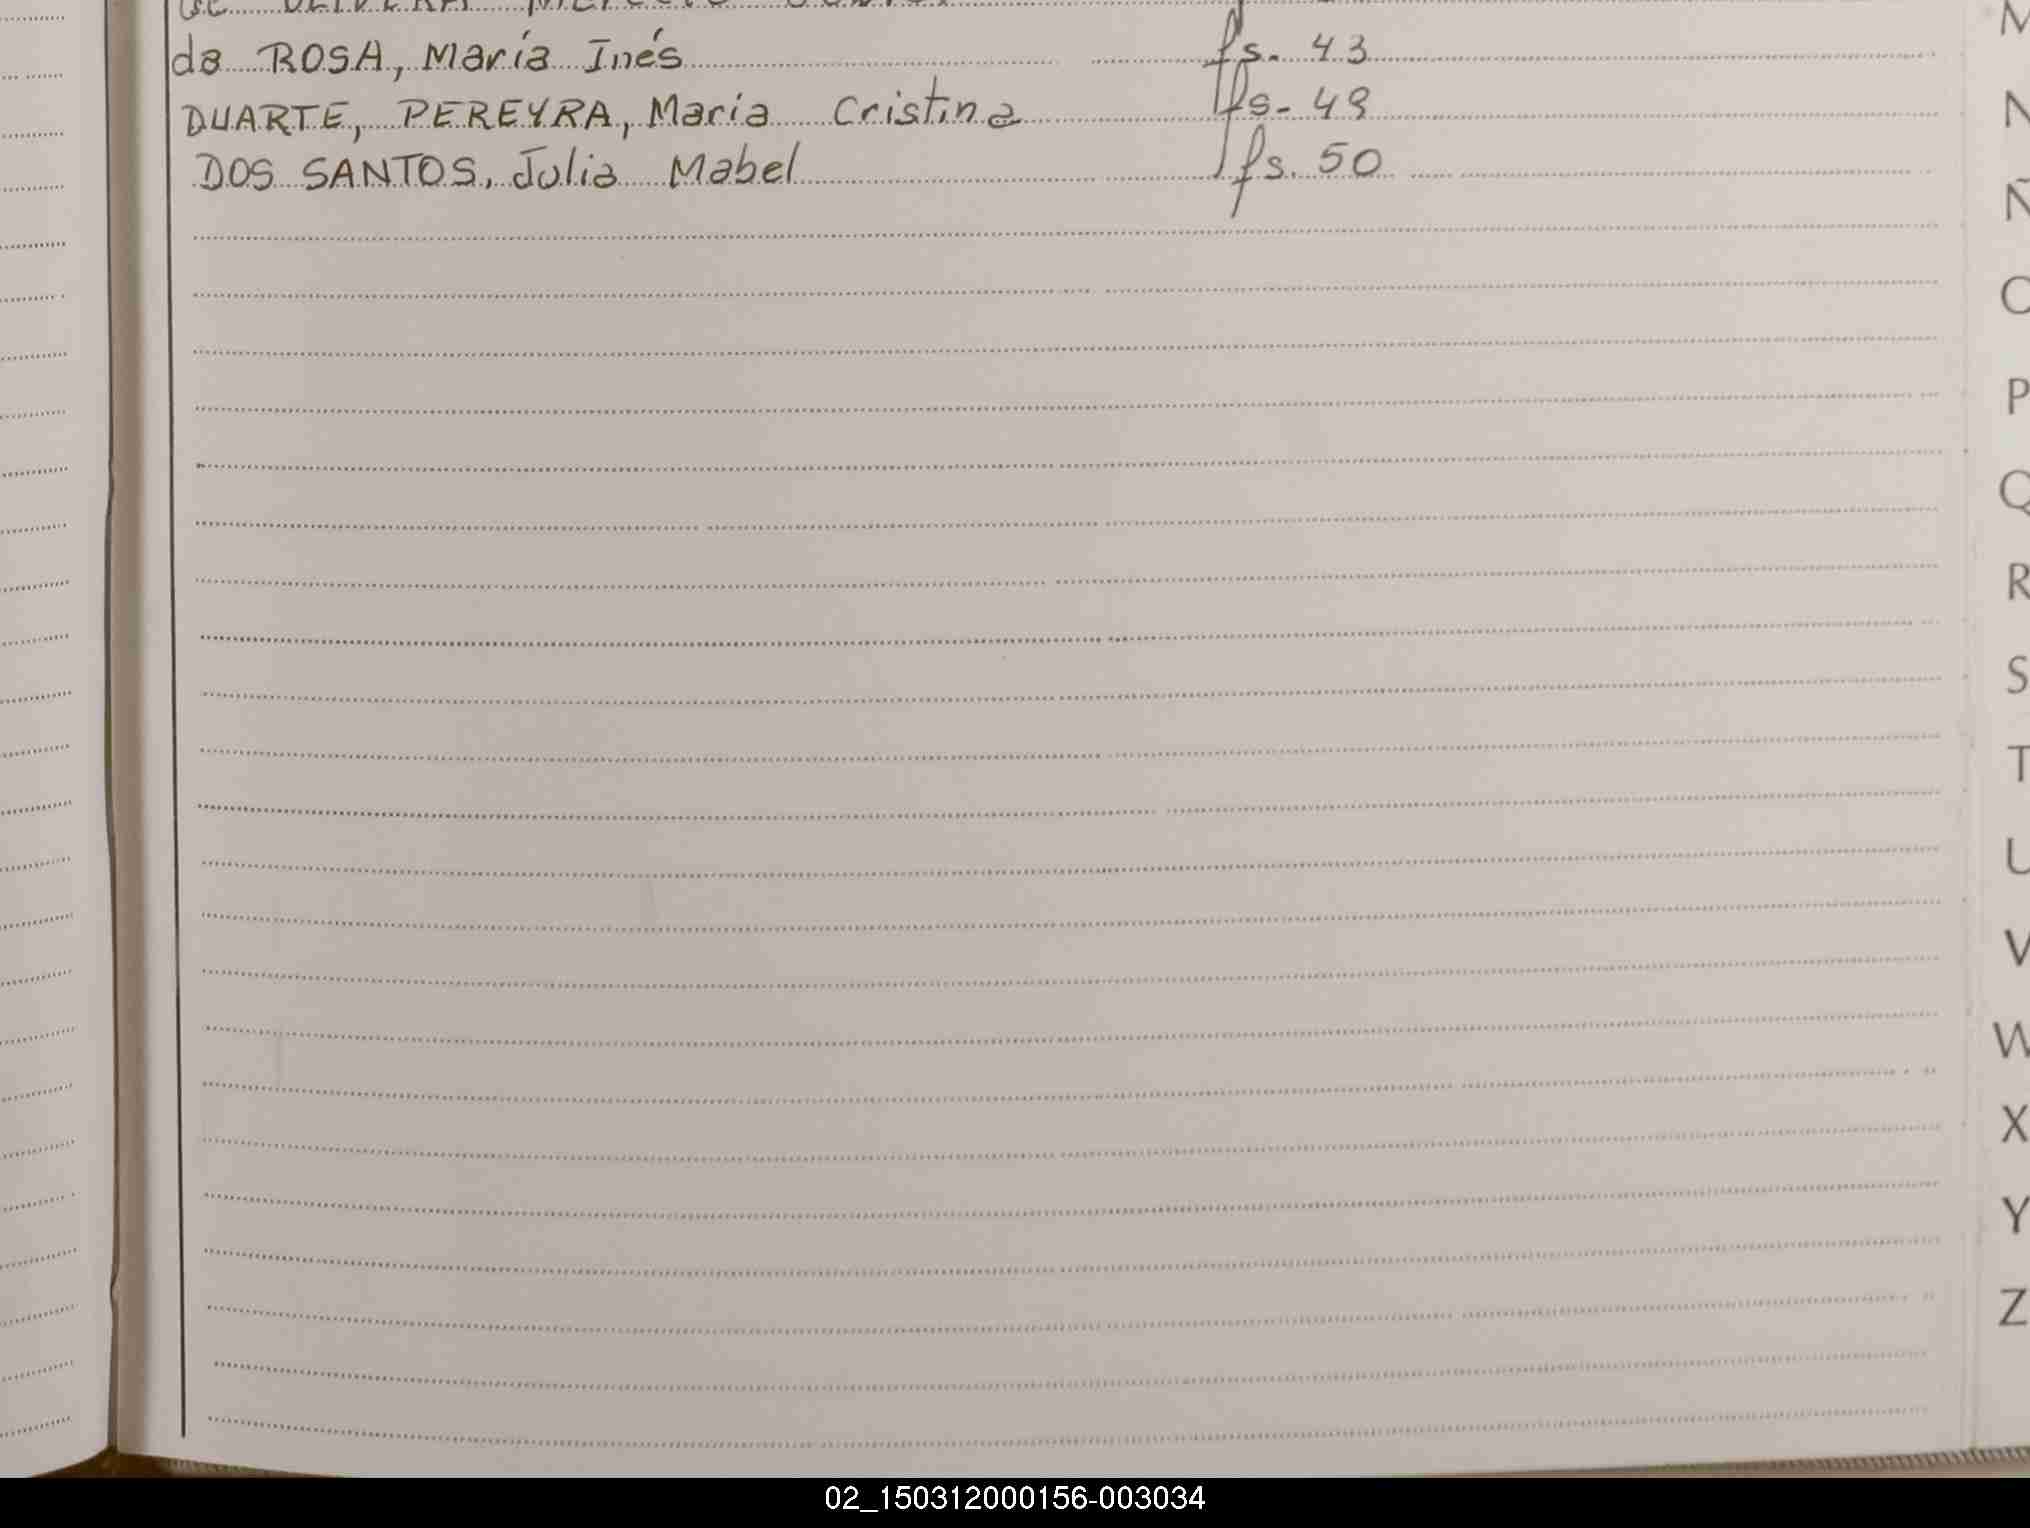 da ROSA, María Inés fs. 43
DUARTE, PEREYRA, Maria Cristina fs- 49
DOS SANTOS, Julia Mabel fs. 50
M
N
Ñ
O
P
Q
R
S
T
U
V
W
X
Y
Z
02_150312000156-003034